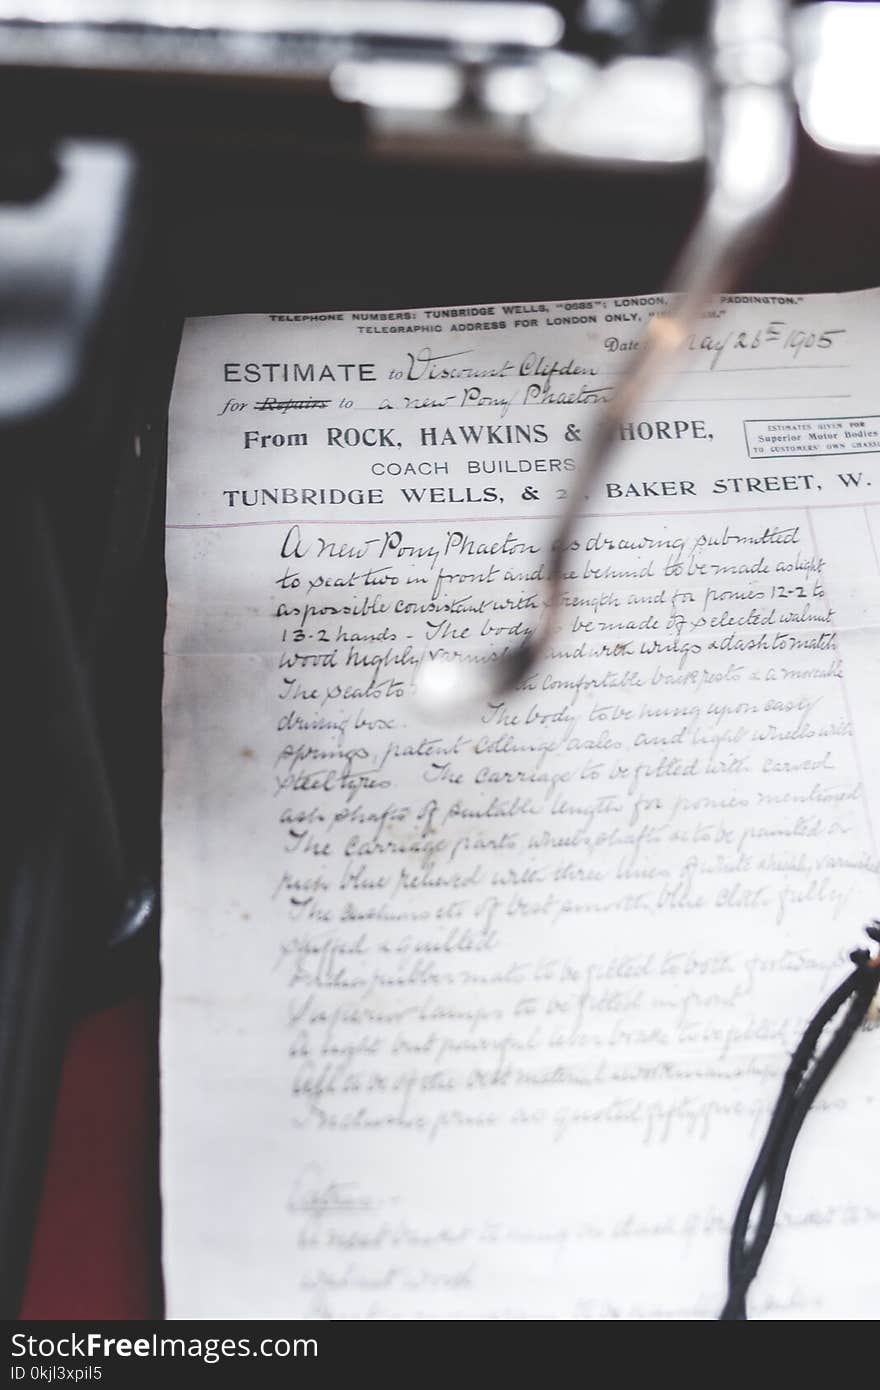 TELEPHONE NUMBERS: TUNBRIDGE WELLS, "0685"; LONDON, PADDINGTON."
TELEGRAPHIC ADDRESS FOR LONDON ONLY,
Date May 26th 1905
ESTIMATE to Viscount Clifden
for Repairs to a new Pony Phaeton
From ROCK, HAWKINS & THORPE,
ESTIMATES GIVEN FOR
Superior Motor Bodies
TO CUSTOMERS' OWN CHASSIS
COACH BUILDERS
TUNBRIDGE WELLS, & BAKER STREET, W.
A new Pony Phaeton as drawing submitted
to seat two in front and one behind to be made as light
as possible consistant with strength and for ponies 12-2 to
13-2 hands - The body to be made of selected walnut
wood highly varnished and with wings & dash to match
The seats to with comfortable back rests & a moveable
driving box. The body to be hung upon easy
springs, patent Collinge axles, and light wheels with
steel tyres. The carriage to be fitted with carved
ash shafts of suitable length for ponies mentioned
The carriage parts, wheels, shafts &c to be painted a
rich blue relieved with three lines of white & highly varnished
The cushions etc of best smooth blue cloth fully
stuffed & quilted
rubber mats to be fitted to both footways
Superior lamps to be fitted in front
A light but powerful lever brake to be fitted
All to be of the best material & workmanship
Inclusive price as quoted fifty five
Extras
A neat basket to hang on dash
walnut wood
StockFreeImages.com
ID 0kjl3xpil5